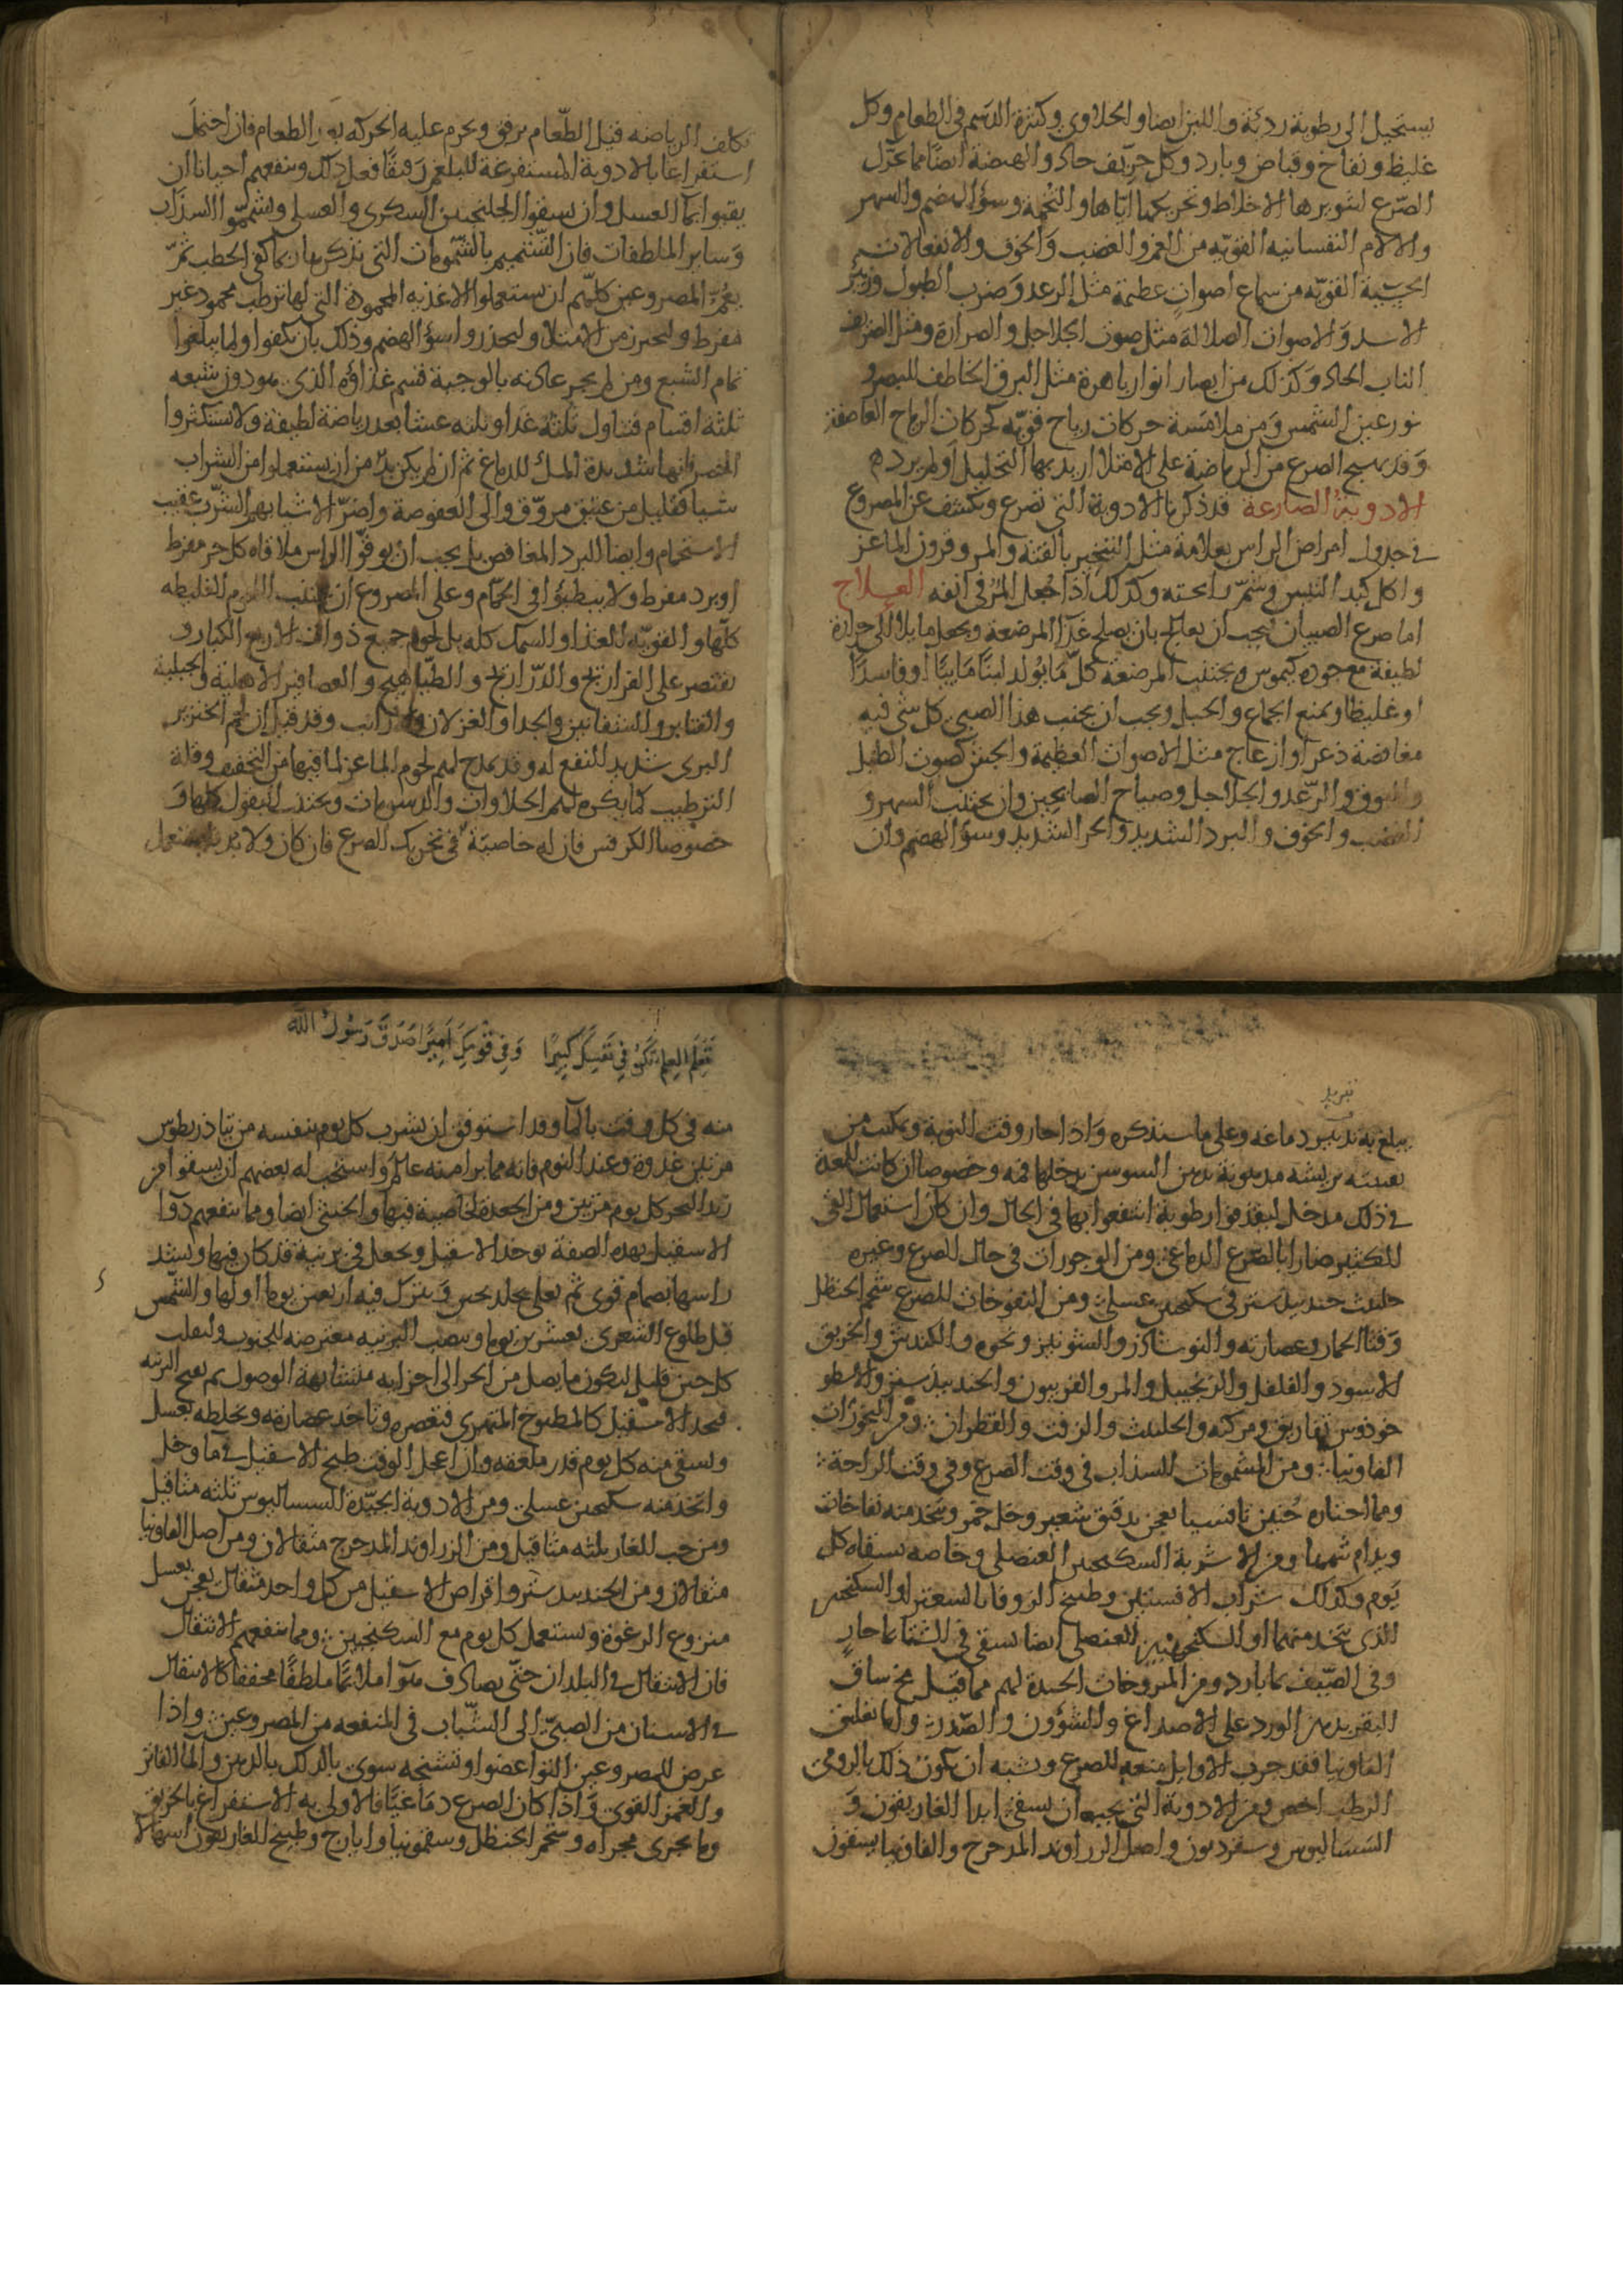 يستحيل الى رطوبة رديئة واللبن ايضا والحلاوى وكثرة الدسم فى الطعام وكل
غليظ ونفاخ وقباض وبارد وكل حريف حاد والهيضة ايضا مما تحرك
الصرع لتثويرها الاخلاط وتحريكها اياها والتخمة وسؤ الهضم والسهر
والالام النفسانيه القويه من الغم والغضب والخوف والانفعالات
الحسية القويه من سماع اصوات عظيمة مثل الرعد وضرب الطبول وزئير
الاسد والاصوات الصلالة مثل صوت الجلاجل والصرارة ومثل الصريف
الناب الحاد وكذلك من ابصار انوار باهرة مثل البرق الخاطف للبصر و
نور عين الشمس ومن ملامسة حركات رياح قويه كحركات الرياح العاصفة
وقد يهيج الصرع من الرياضة على الامتلا اريد بها التحليل او لم يرد
الادوية الصارعة قد ذكرنا الادوية التى تصرع وتكشف عن المصروع
فى جدول امراض الراس بعلامة مثل التبخير بالقنة والمر وقرون الماعز
واكل كبد التيس وشم رائحته وكذلك اذا جعل المر فى انفه العلاج
اما صرع الصبيان فيجب ان يعالج بان يصلح غذا المرضعة ويجعل مايلا الى حرارة
لطيفة مع جودة كيموس ويجتنب المرضعة كل ما يولد لبنا مايئا او فاسدا
او غليظا ويمنع الجماع والحبل ويجب ان يجنب هذا الصبى كل شى فيه
مغافصة ذعر او ازعاج مثل الاصوات العظيمة والجش كصوت الطبل
والبوق والرعد والجلاجل وصياح الصائحين وان يجتنب السهر و
الغضب والخوف والبرد الشديد والحر الشديد وسؤ الهضم وان
تكلف الرياضه قبل الطعام برفق ويحرم عليه الحركه بعد الطعام فان احتمل
استفراغا بالادوية المستفرغة للبلغم رقيقا فعل ذلك وينفعهم احيانا ان
يقيوا بما العسل وان يسقوا الجلنجبين السكرى والعسلى ويشمموا السذاب
وساير الملطفات فان التشميم بالشمومات التى نذكرها ربما كفى الخطب ثم
يعم المصروعين كلهم ان يستعملوا الاغذيه المحمودة التى لها ترطيب محمود غير
مفرط ولتحرز من الامتلا وليحذروا سؤ الهضم وذلك بان يكفوا ولما يبلغوا
تمام الشبع ومن لم يجر عادته بالوجبة قسم غذاؤه الذى هو دون شبعه
ثلثة اقسام فتناول ثلثه غدا وثلثه عشا بعد رياضة لطيفة ولا يستكثروا
الخمر فانها شديدة الملؤ للدماغ ثم ان لم يكن بد من ان يستعملوا من الشراب
شيا فقليل من عتيق مروق والى العفوصة واضر الاشيا بهم الشرب عقيب
الاستحمام وايضا البرد المغافص بل يجب ان يوقوا الراس ملاقاه كل حر مفرط
او برد مفرط ولا يبطئوا فى الحمام وعلى المصروع ان يجتنب اللحوم الغليظه
كلها والقويه الغذا والسمك كله بل لحوم جميع ذوات الاربع الكبار و
يقتصر على الفراريج والدراريج والطياهيج والعصافير الاهلية والجبلية
والقنابر والشفانين والجدا والغزلان والارانب وقد قيل ان لحم الخنزير
البرى شديد النفع له وقد يمدح لهم لحوم الماعز لما فيها من التجفيف وقلة
الترطيب كما يكره لهم الحلاوات والدسومات ويجتنب البقول كلها و
خصوصا الكرفس فان له خاصية فى تحريك الصرع فان كان ولا بد فليستعمل
تبريد
يبلغ به تدبير دماغه وعلى ما سنذكره واذا حار وقت النوبة ويمكنت من
تقيئه بريشة مدهونة بدهن السوسن يدخلها فمه وخصوصا ان كانت للمعدة
فى ذلك مدخل ليقذفوا رطوبة انتفعوا بها فى الحال وان كان استعمال القى
الكثير ضارا بالصرع الدماغى ومن الوجورات فى حال الصرع وغيره
حلتيت جندبيدستر فى سكنجبين عسلى ومن النفوخات للصرع شحم الحنظل
وقثا الحمار وعصارته والنوشادر والشونيز ونحوه والكندش والخربق
الاسود والفلفل والزنجبيل والمر والفربيون والجندبيدستر والاسطو
خودوس تفاريق ومركبة والحلتيت والزفت والقطران ومن البخورات
الفاونيا ومن المشمومات السذاب فى وقت الصرع وفى وقت الراحة
ومما اختاره حنين تافسيا يعجن بدقيق شعير وخل خمر ويتخذ منه نفاخات
ويدام شمها ومن الاشربة السكنجبين العنصلى وخاصه يسقاه كل
يوم وكذلك شراب الافسنتين وطبيخ الزوفا بالسعتر او السكنجبين
الذى يتخذ منهما او السكنجبين العنصلى ايضا يسقى فى الشتا بما حار
وفى الصيف بما بارد ومن المروخات الجيدة لهم مما قيل مخ ساق
البقر بدهن الورد على الاصداغ والشؤون والصدر واما تعليق
الفاونيا فقد جرب الاوايل منعه للصرع ويشبه ان يكون ذلك بالرومى
الرطب اخص ومن الادوية التى يجب ان يسقى ابدا الغاريقون و
السساليوس وسقرديون واصل الزراوند المدحرج والفاونيا يسقون
تعلم العلم تكن فى نفسك كبيرا وفى قومك اميرا صدق رسول الله
منه فى كل وقت بالما وقد استوفق ان يشرب كل يوم بنفسه من تياذريطوس
مرتين غدوة وعند النوم فانه مما برا منه عالم واستحب له بعضهم ان يسقوا من
زبد البحر كل يوم مرتين ومن الجعدة لخاصية فيها والخنثى ايضا ومما ينفعهم دوا
الاسقيل بهذه الصفة يوخذ الاسقيل ويجعل فى برنية قد كان فيها ويشد
راسها بصمام قوى ثم يعلى بجلد ويترك فيه اربعين يوما اولها والشمس
قبل طلوع الشعرى بعشرين يوما وينصب البرنيه معترضه للجنوب وليقلب
كل حين قليل ليكون ما يصل من الحر الى اجزايه متشابهة الوصول ثم يفتح البرنيه
فتجد الاسقيل كالمطبوخ المتهرى فتعصره وتاخذ عصارته وتخلطه بعسل
وتسقى منه كل يوم قدر ملعقه وان اعجل الوقت طبخ الاسقيل فى ما وخل
واتخذ منه سكنجبين عسلى ومن الادوية الجيدة السساليوس ثلثه مثاقيل
ومن حب الغار ثلثه مثاقيل ومن الزراوند المدحرج مثقالان ومن اصل الفاونيا
مثقالان ومن الجندبيدستر واقراص الاسقيل من كل واحد مثقال يعجن بعسل
منزوع الرغوة ويستعمل كل يوم مع السكنجبين ومما ينفعهم الانتقال
فان الانتقال فى البلدان حتى يصادف هوا ملائما ملطفا مجففا كالانتقال
فى الاسنان من الصبى الى الشباب فى المنفعه من المصروعين واذا
عرض للمصروعين التوا عضو او تشنجه سوى بالدلك بالدهن والما الفاتر
والغمز القوى واذا كان الصرع دماغيا فالاولى به الاستفراغ بالخربق
وما يجرى مجراه وشحم الحنظل وسقمونيا وايارج وطبيخ الغاريقون اسهالا